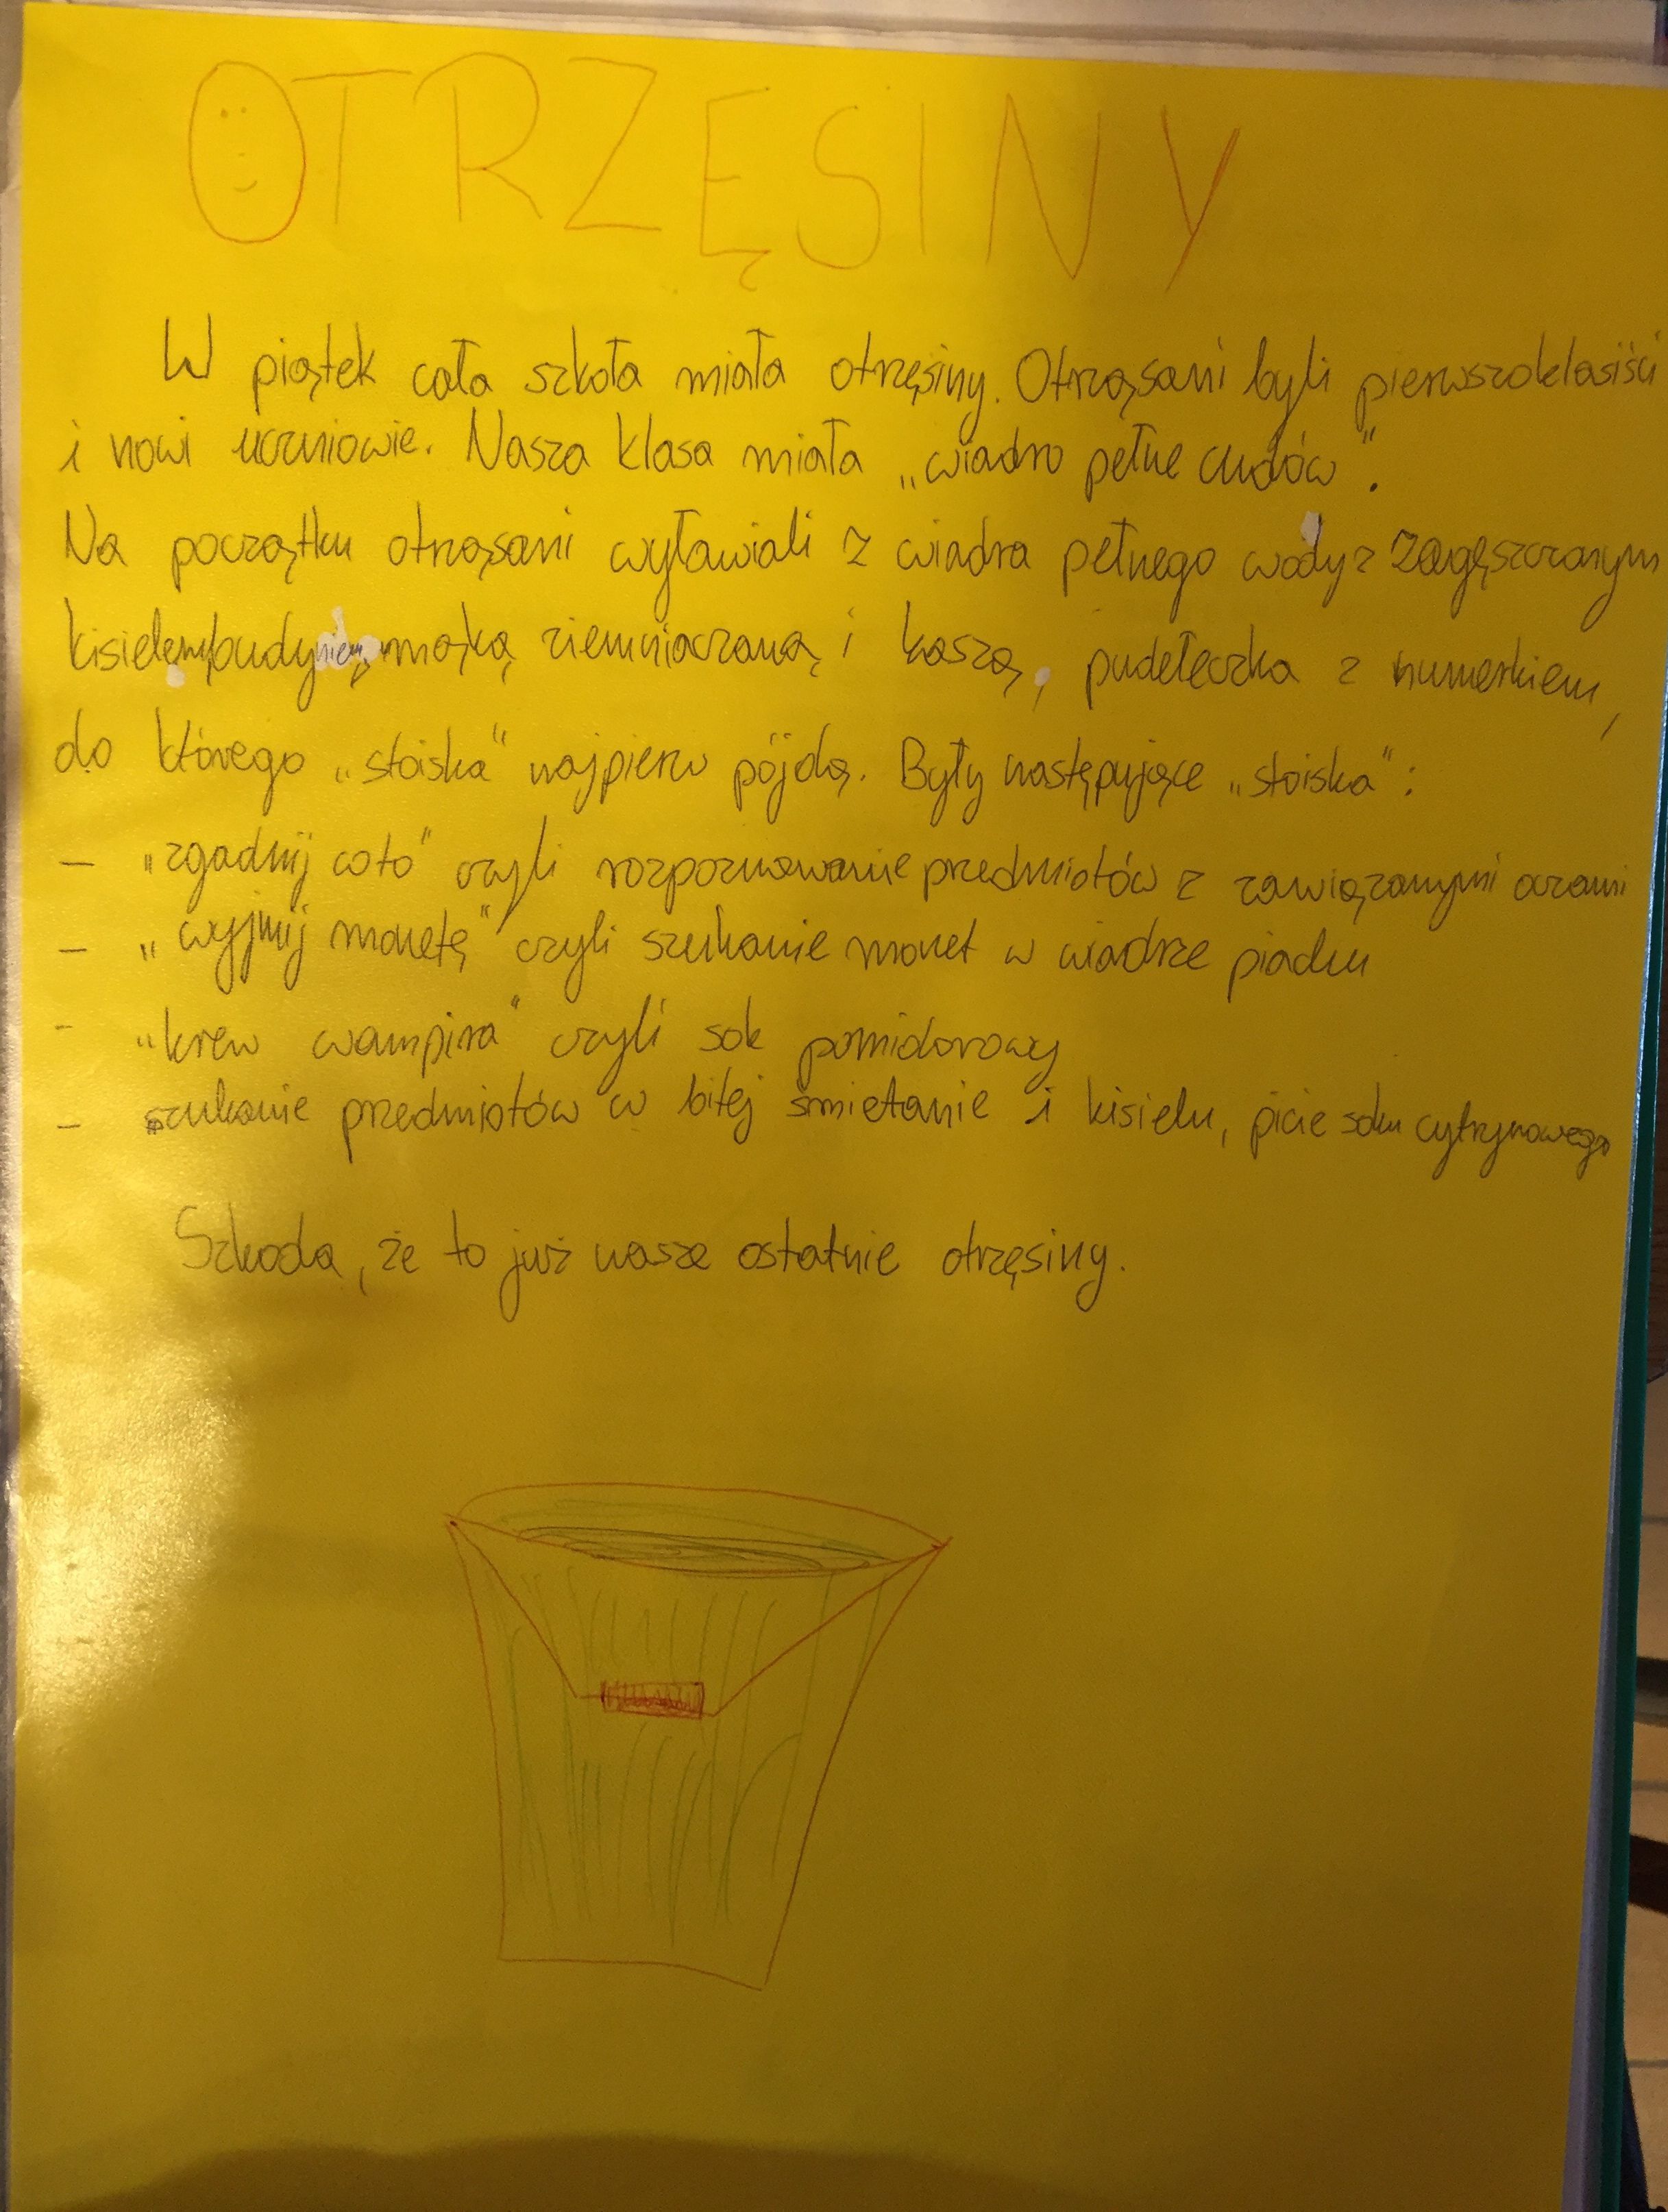 OTRZĘSINY
W piątek cała szkoła miała otrzęsiny. Otrząsani byli pierwszoklasiści
i nowi uczniowie. Nasza klasa miała „wiadro pełne cudów”.
Na początku otrząsani wyławiali z wiadra pełnego wody z zagęszczanym
kisielem, budyniem, mąką ziemniaczaną i kaszą, pudełeczka z numerkiem,
do którego „stoiska” najpierw pójdą. Były następujące „stoiska”:
– „zgadnij co to” czyli rozpoznawanie przedmiotów z zawiązanymi oczami
– „wyjmij monetę” czyli szukanie monet w wiadrze piasku
- „krew wampira” czyli sok pomidorowy
– szukanie przedmiotów w bitej śmietanie i kisielu, picie soku cytrynowego
Szkoda, że to już nasze ostatnie otrzęsiny.